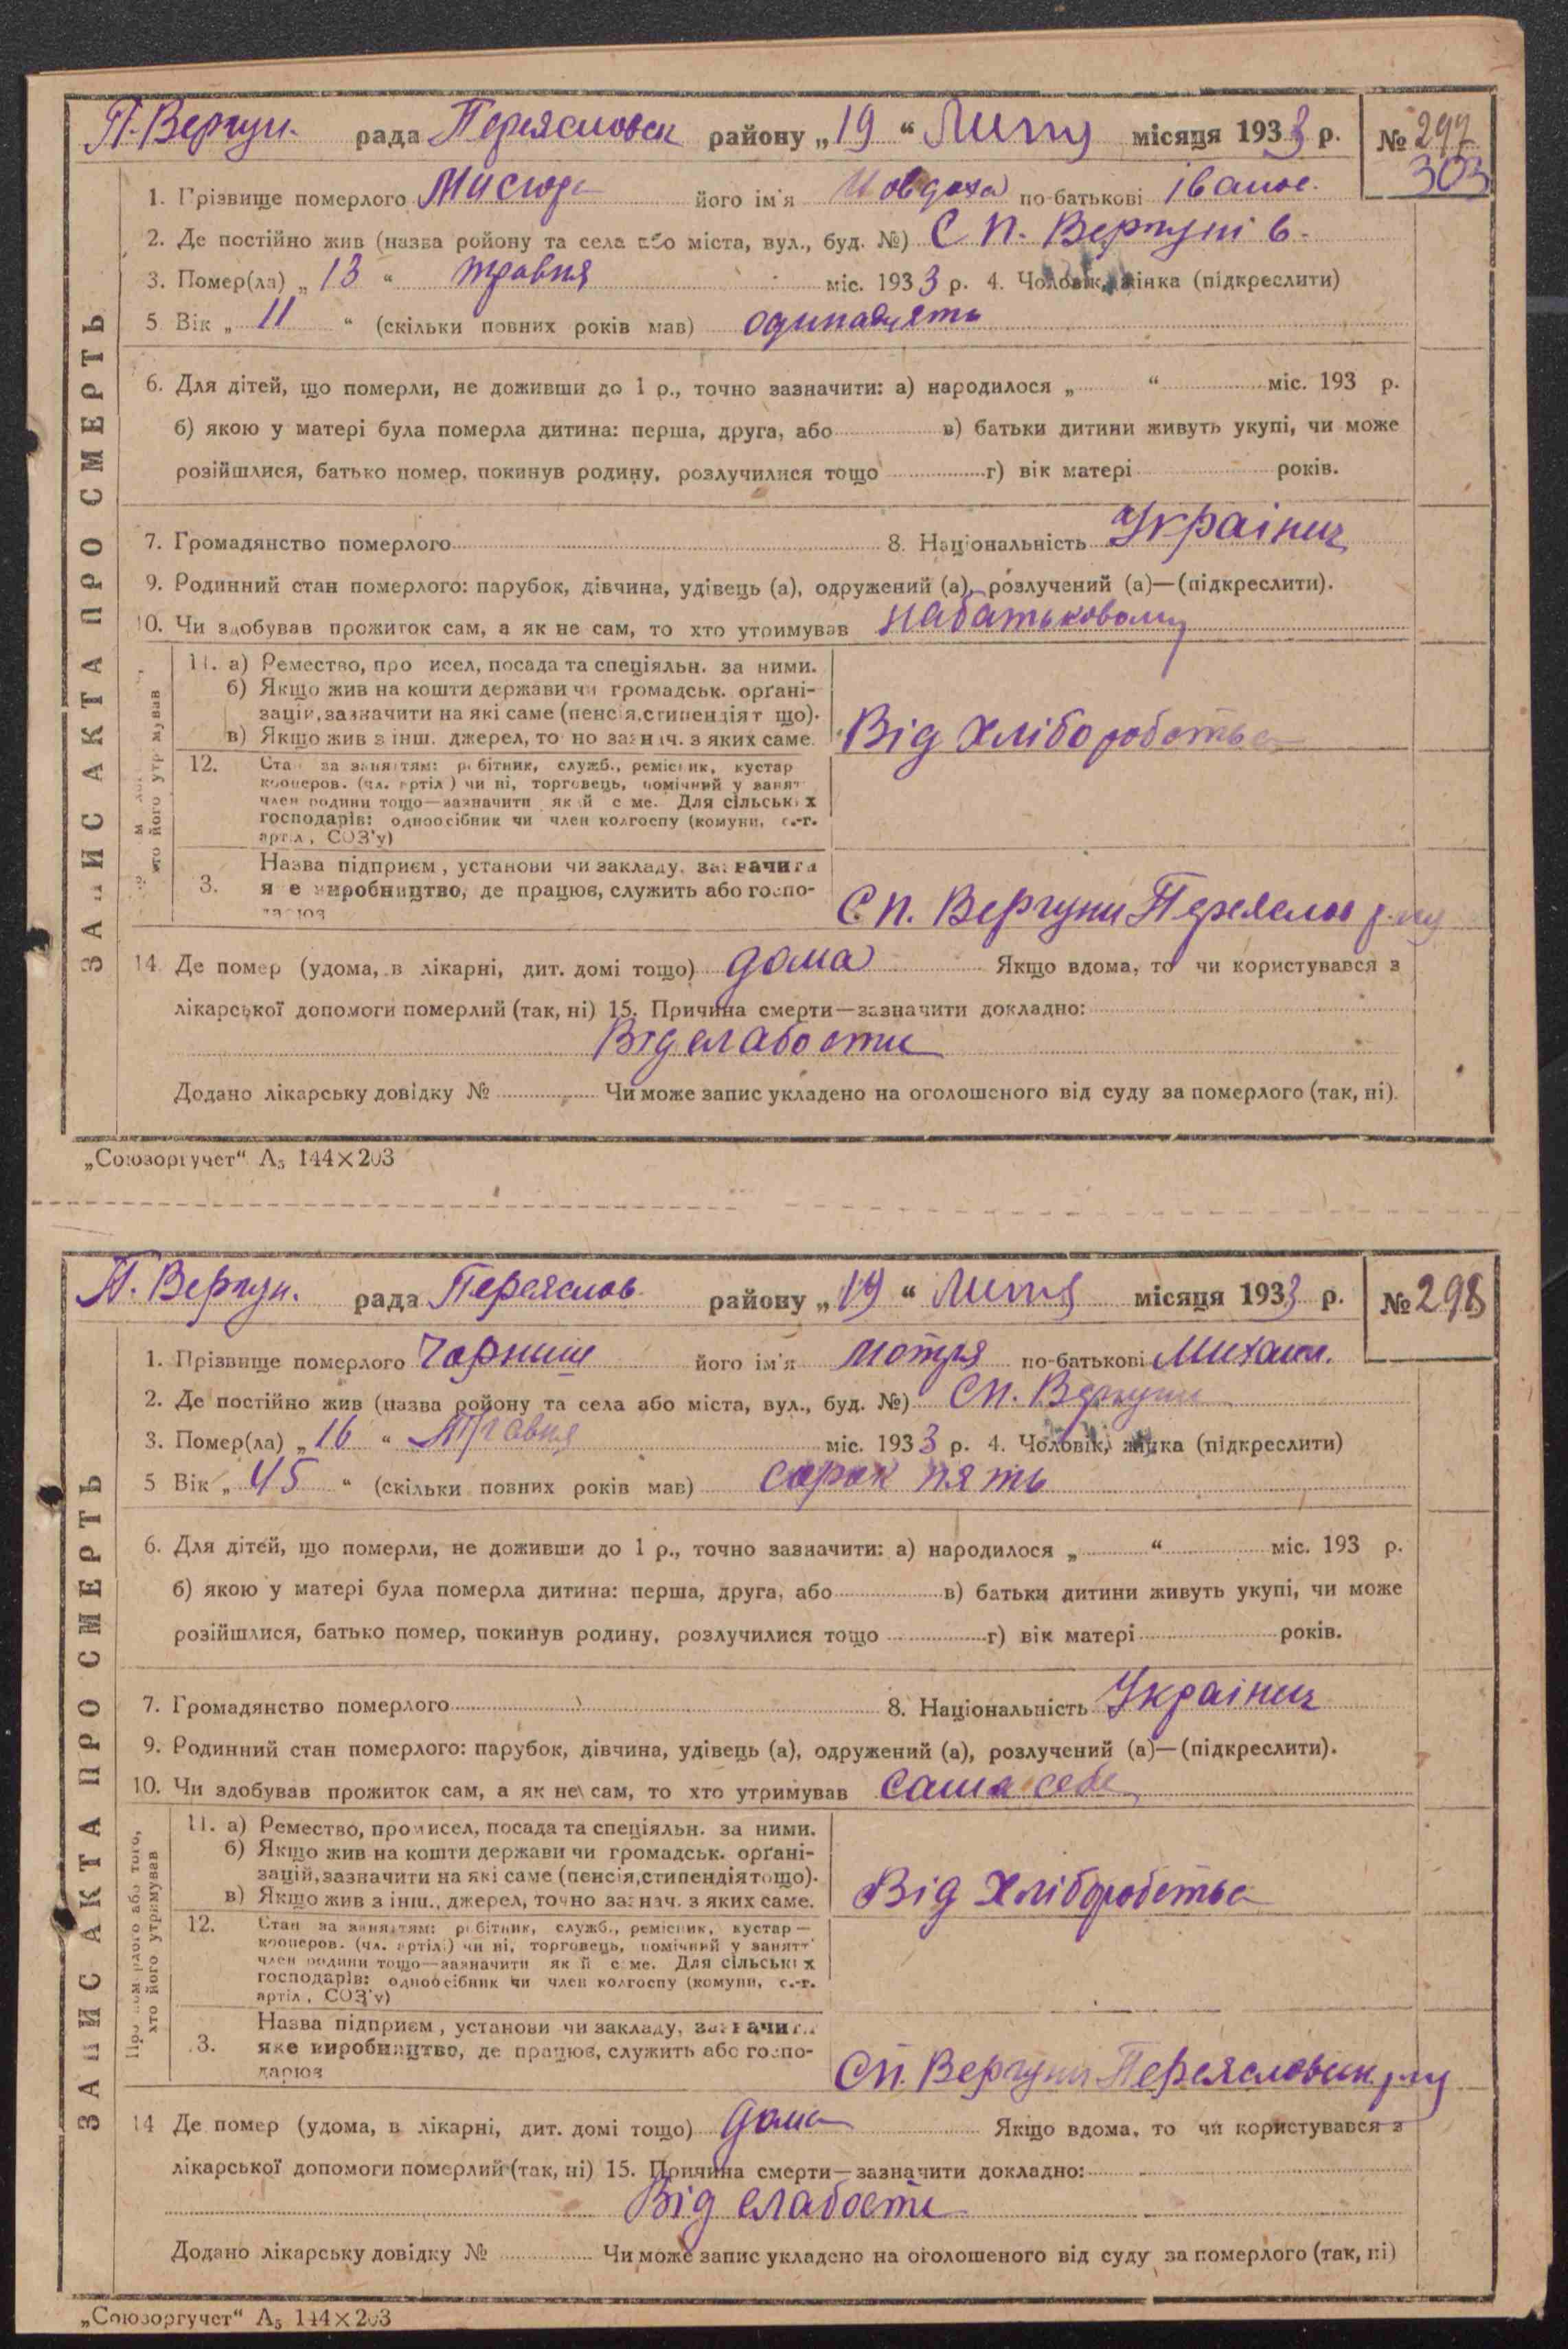 П. Вергун. рада Переясловск району „19“ Липня місяця 1933 р. № 297
303
1. Прізвище померлого Мисюра його ім'я Иовдоха по-батькові іванов.
2. Де постійно жив (назва ройону та села або міста, вул., буд. №) С П. Вергуні в.
3. Помер(ла) „13“ травня міс. 1933 р. 4. Чоловік, жінка (підкреслити)
5 Вік „11“ (скільки повних років мав) одинадцять
6. Для дітей, що померли, не доживши до 1 р., точно зазначити: а) народилося „ “ міс. 193 р.
б) якою у матері була померла дитина: перша, друга, або в) батьки дитини живуть укупі, чи може
розійшлися, батько помер, покинув родину, розлучилися тощо г) вік матері років.
7. Громадянство померлого 8. Національність Украінец
9. Родинний стан померлого: парубок, дівчина, удівець (а), одружений (а), розлучений (а)—(підкреслити).
10. Чи здобував прожиток сам, а як не сам, то хто утримував набатьковому
11. а) Ремество, про исел, посада та спеціяльн. за ними.
б) Якщо жив на кошти держави чи громадськ. орґані-
зацій, зазначити на які саме (пенсія, стипендія т що).
в) Якщо жив з інш. джерел, то но зазнач. з яких саме.
Від Хліборобства
12. Ста за заняттям: робітник, служб., ремісник, кустар
кооперов. (чл. артіл) чи ні, торговець, помічний у занят
член родини тощо—зазначити який с ме. Для сільських
господарів: одноосібник чи член колгоспу (комуни, с.-г.
артіл, СОЗ'у)
3. Назва підприєм, установи чи закладу, зазначити
я е виробництво, де працює, служить або госпо-
дарює
С П. Вергуни Переяслов р-ну
14. Де помер (удома, в лікарні, дит. домі тощо) дома Якщо вдома, то чи користувався з
лікарської допомоги померлий (так, ні) 15. Причина смерти—зазначити докладно:
Від слабости
Додано лікарську довідку № Чи може запис укладено на оголошеного від суду за померлого (так, ні).
ЗАПИС АКТА ПРО СМЕРТЬ
„Союзоргучет“ А5 144×203
П. Вергун. рада Переяслов району „19“ Липня місяця 1933 р. № 298
1. Прізвище померлого Чорниш його ім'я Мотря по-батькові Михаил.
2. Де постійно жив (назва ройону та села або міста, вул., буд. №) СП. Вергуни
3. Помер(ла) „16“ Травня міс. 1933 р. 4. Чоловік, жінка (підкреслити)
5 Вік „45“ (скільки повних років мав) сорок пять
6. Для дітей, що померли, не доживши до 1 р., точно зазначити: а) народилося „ “ міс. 193 р.
б) якою у матері була померла дитина: перша, друга, або в) батьки дитини живуть укупі, чи може
розійшлися, батько помер, покинув родину, розлучилися тощо г) вік матері років.
7. Громадянство померлого 8. Національність Украінец
9. Родинний стан померлого: парубок, дівчина, удівець (а), одружений (а), розлучений (а)—(підкреслити).
10. Чи здобував прожиток сам, а як не сам, то хто утримував сама себе
Про померлого або того,
хто його утримував
11. а) Ремество, промисел, посада та спеціяльн. за ними.
б) Якщо жив на кошти держави чи громадськ. орґані-
зацій, зазначити на які саме (пенсія, стипендія тощо).
в) Якщо жив з інш., джерел, точно зазнач. з яких саме.
Від Хліборобства
12. Стан за заняттям: робітник, служб., ремісник, кустар—
кооперов. (чл. артіл) чи ні, торговець, помічний у занятт
член родини тощо—зазначити як й с ме. Для сільських
господарів: одноосібник чи член колгоспу (комуни, с.-г.
артіл, СОЗ'у)
3. Назва підприєм, установи чи закладу, зазначити
яке виробництво, де працює, служить або госпо-
дарює
СП. Вергуни Переясловск р-ну
14 Де помер (удома, в лікарні, дит. домі тощо) дома Якщо вдома, то чи користувався з
лікарської допомоги померлий (так, ні) 15. Причина смерти—зазначити докладно:
Від слабости
Додано лікарську довідку № Чи може запис укладено на оголошеного від суду за померлого (так, ні)
ЗАПИС АКТА ПРО СМЕРТЬ
„Союзоргучет“ А5 144×203